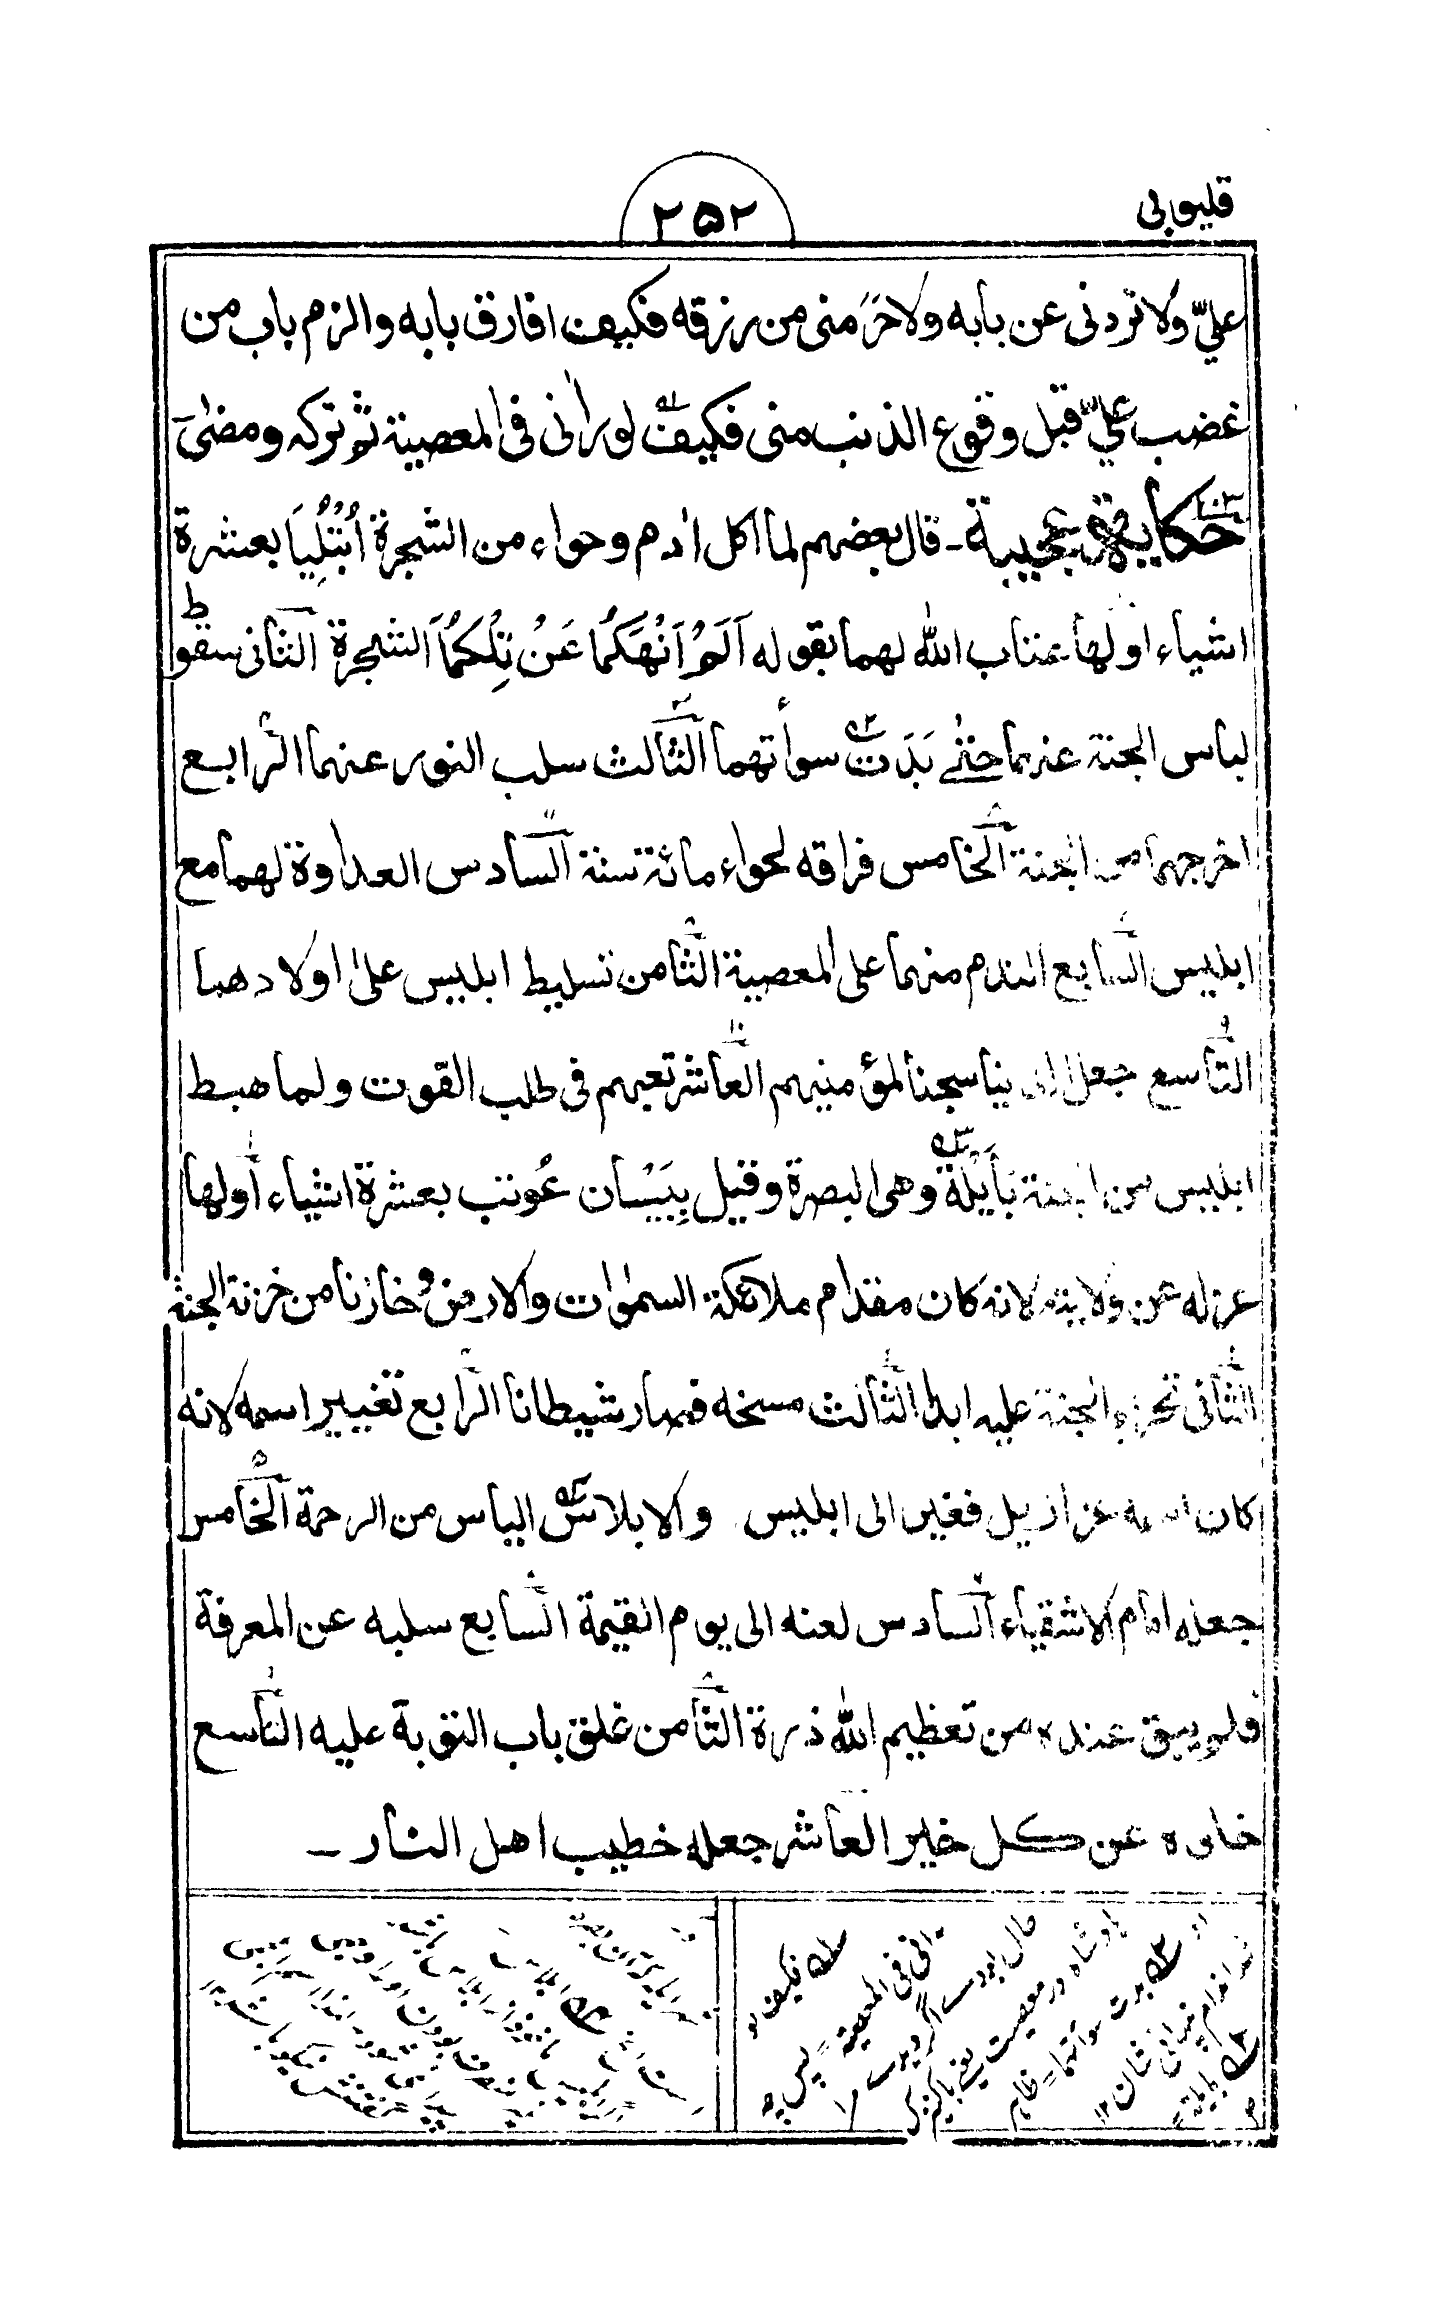 قليوبي
۲۵۲
عليّ ولا تردنى عن بابه ولا حرمنى من رزقه فكيف افارق بابه والزم باب من
غضب عليّ قبل وقوع الذنب منى فكيف لو رأنى فى المعصية ثم تركه ومضىٰ
حكاية عجيبة ـ قال بعضهم لما اكل اٰدم وحواء من الشجرة اُبْتُلِيَا بعشرة
اشياء اولها عتاب الله لهما بقوله اَلَمْ اَنْهَكُمَا عَنْ تِلْكُمَا الشجرة الثانى سقوط
لباس الجنة عنهما حتٰى بَدَت سوأتهما الثالث سلب النور عنهما الرابع
اخرجهما من الجنة الخامس فراقه لحواء مائة سنة السادس العداوة لهما مع
ابليس السابع الندم منهما على المعصية الثامن تسليط ابليس علىٰ اولادهما
التاسع جعل الدنيا سجنا لمؤمنيهم العاشر تعبهم فى طلب القوت ولما هبط
ابليس من الجنة بَأيَلَة وهى البصرة وقيل بِبَيْسَان عُوتب بعشرة اشياء اولها
عزله عن ولايته لانه كان مقدام ملائكة السمٰوات والارض وخازنا من خزنة الجنة
الثانى تحريم الجنة عليه ابدا الثالث مسخه فصار شيطانا الرابع تغيير اسمه لانه
كان اسمه عزازيل فغير الى ابليس والابلاس الياس من الرحمة الخامس
جعله امام الاشقياء السادس لعنه الى يوم القيمة السابع سلبه عن المعرفة
فلم يبق عنده من تعظيم الله ذرة الثامن غلق باب التوبة عليه التاسع
خلوه عن كل خير العاشر جعله خطيب اهل النار ـ
فكيف لو
رانى فى المعصية پس چه
حال بودے اگر ديدے
بادشاه در معصيت
بدت سوآتهما ظاهر